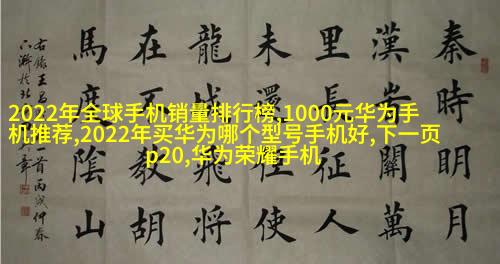 2022年全球手机销量排行榜,1000元华为手
机推荐,2022年买华为哪个型号手机好,下一页
p20,华为荣耀手机
秦時明月
漢時關萬
里長征人
未還但使
龍城飛將
在不教胡
馬度陰山
右錄王昌 首丙戌仲春